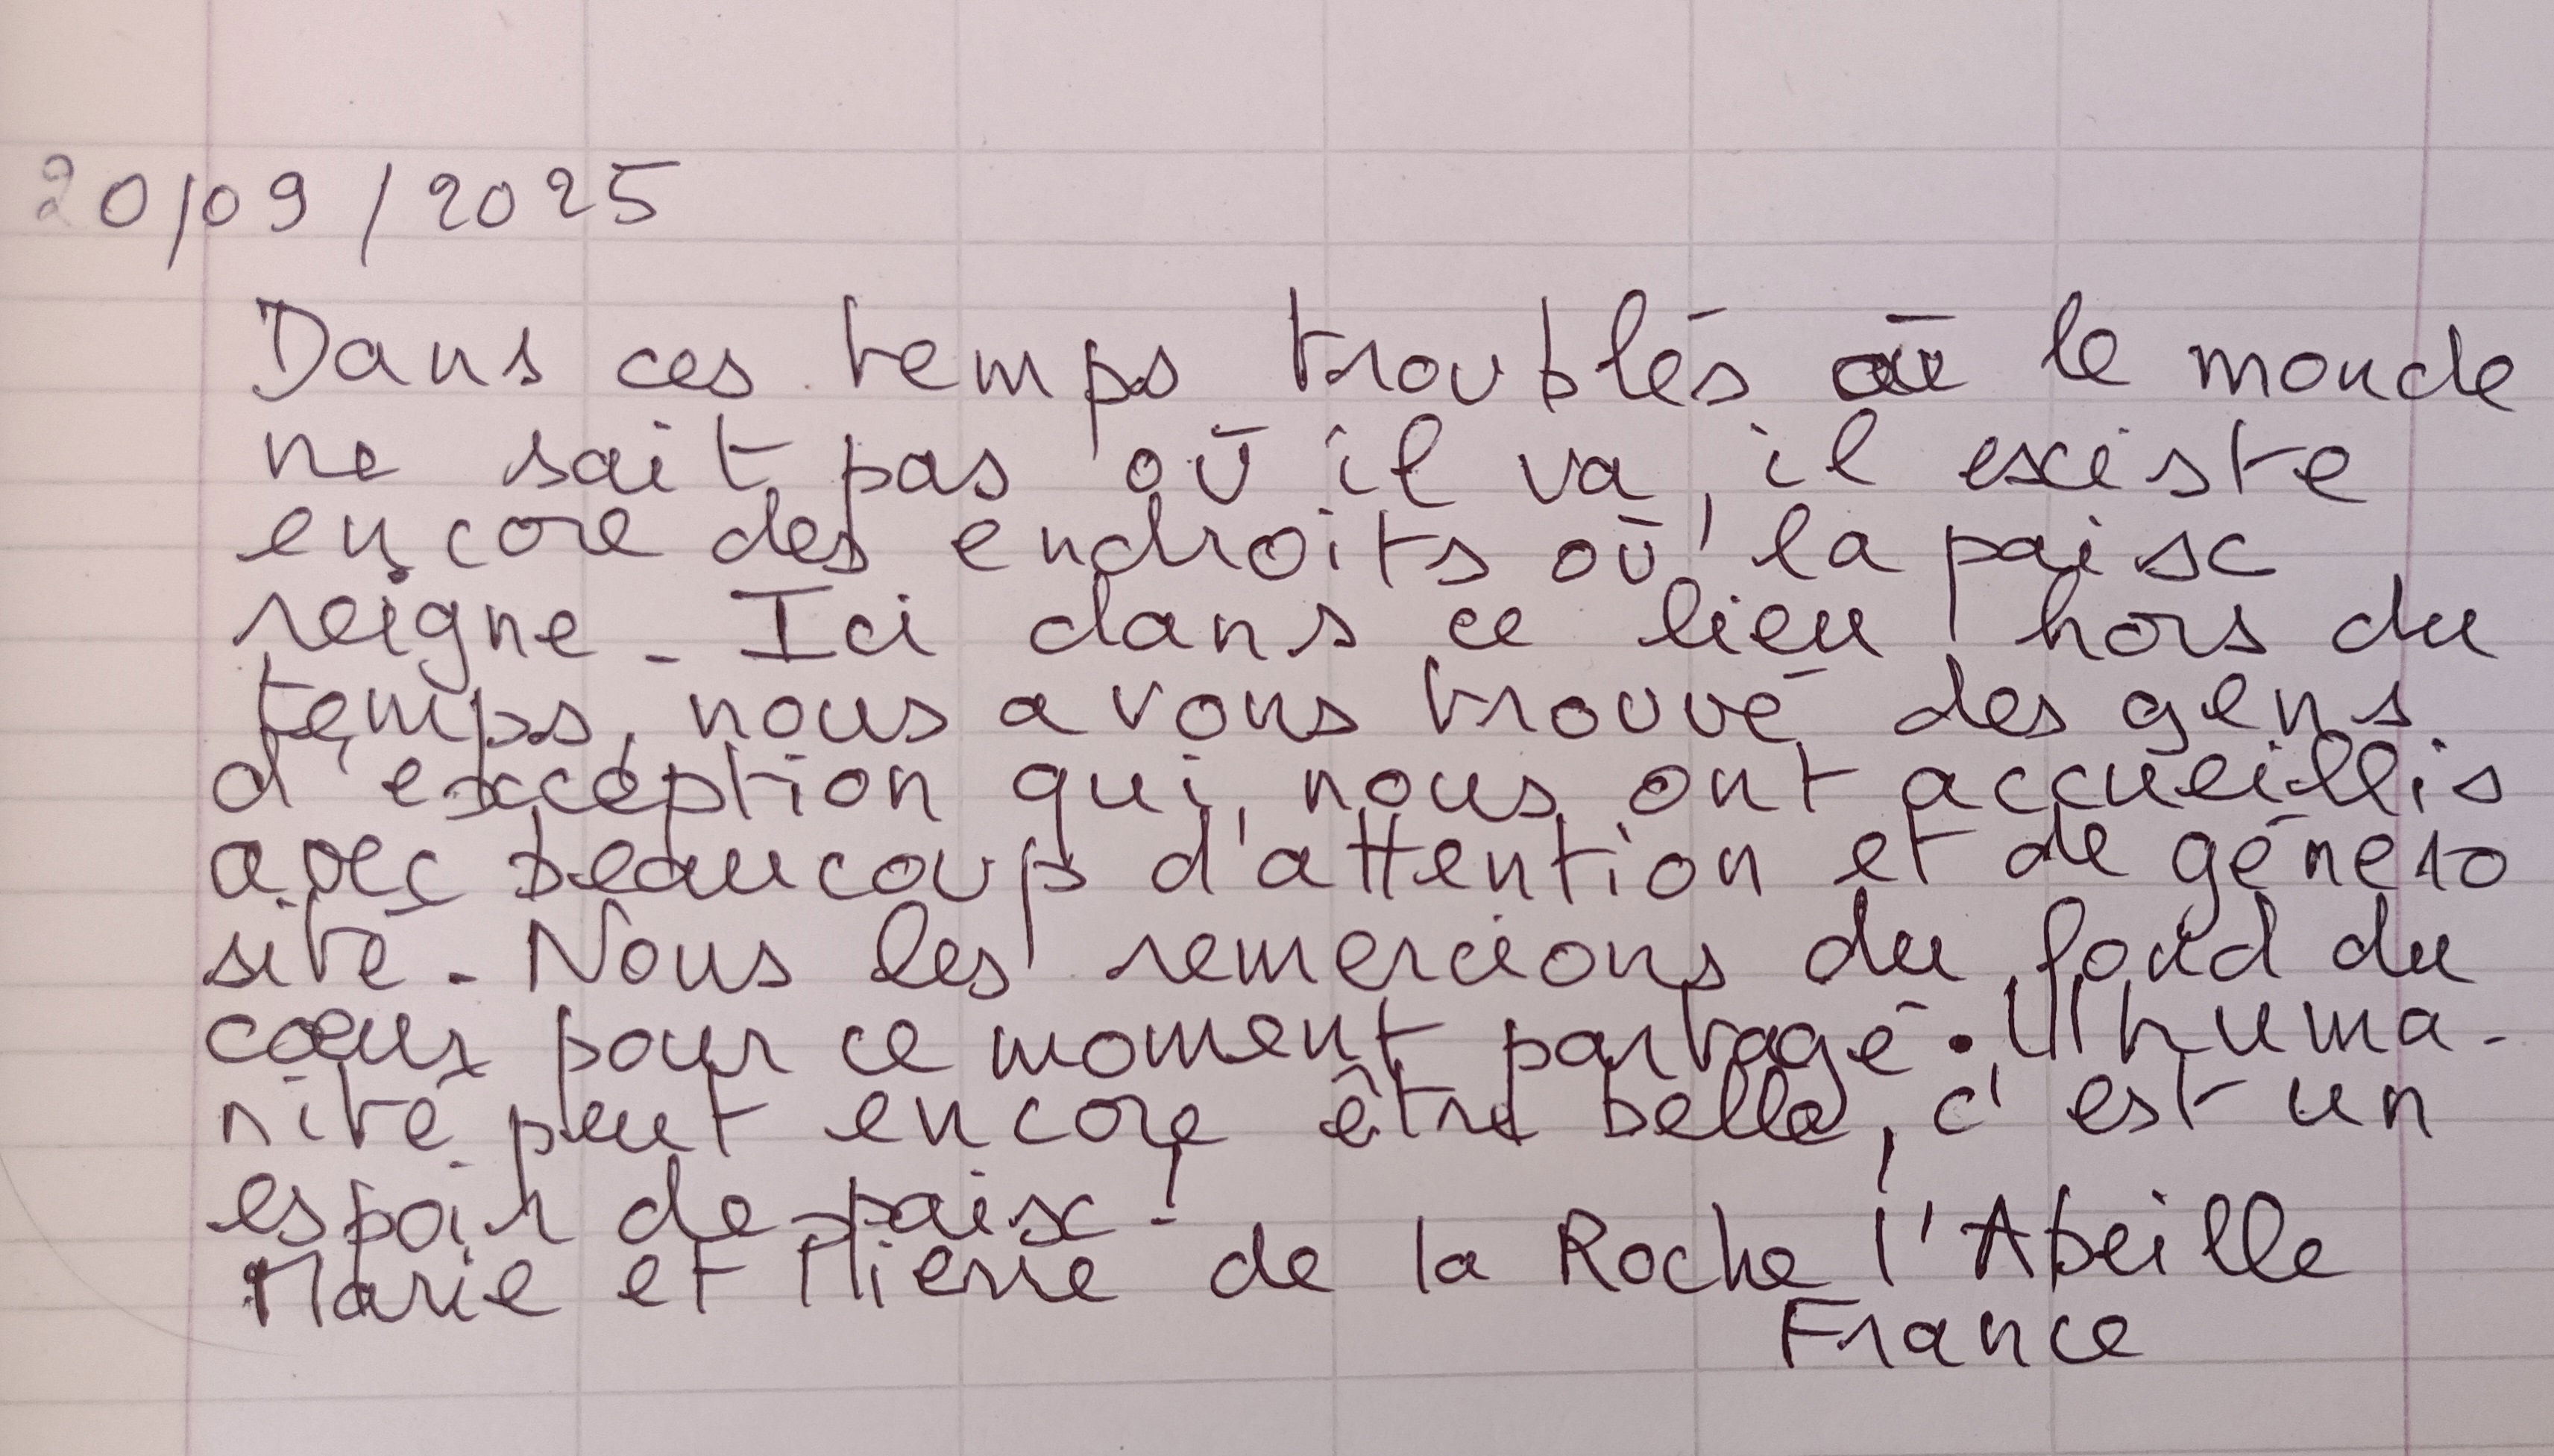 20/09/2025
Dans ces temps troublés où le monde
ne sait pas où il va, il existe
encore des endroits où la paix
reigne. Ici dans ce lieu hors du
temps, nous avons trouvé des gens
d'exception qui nous ont accueillis
avec beaucoup d'attention et de généro
sité. Nous les remercions du fond du
cœur pour ce moment partagé. L'huma-
nité peut encore être belle, c'est un
espoir de paix !
Marie et Pierre de la Roche l'Abeille
France